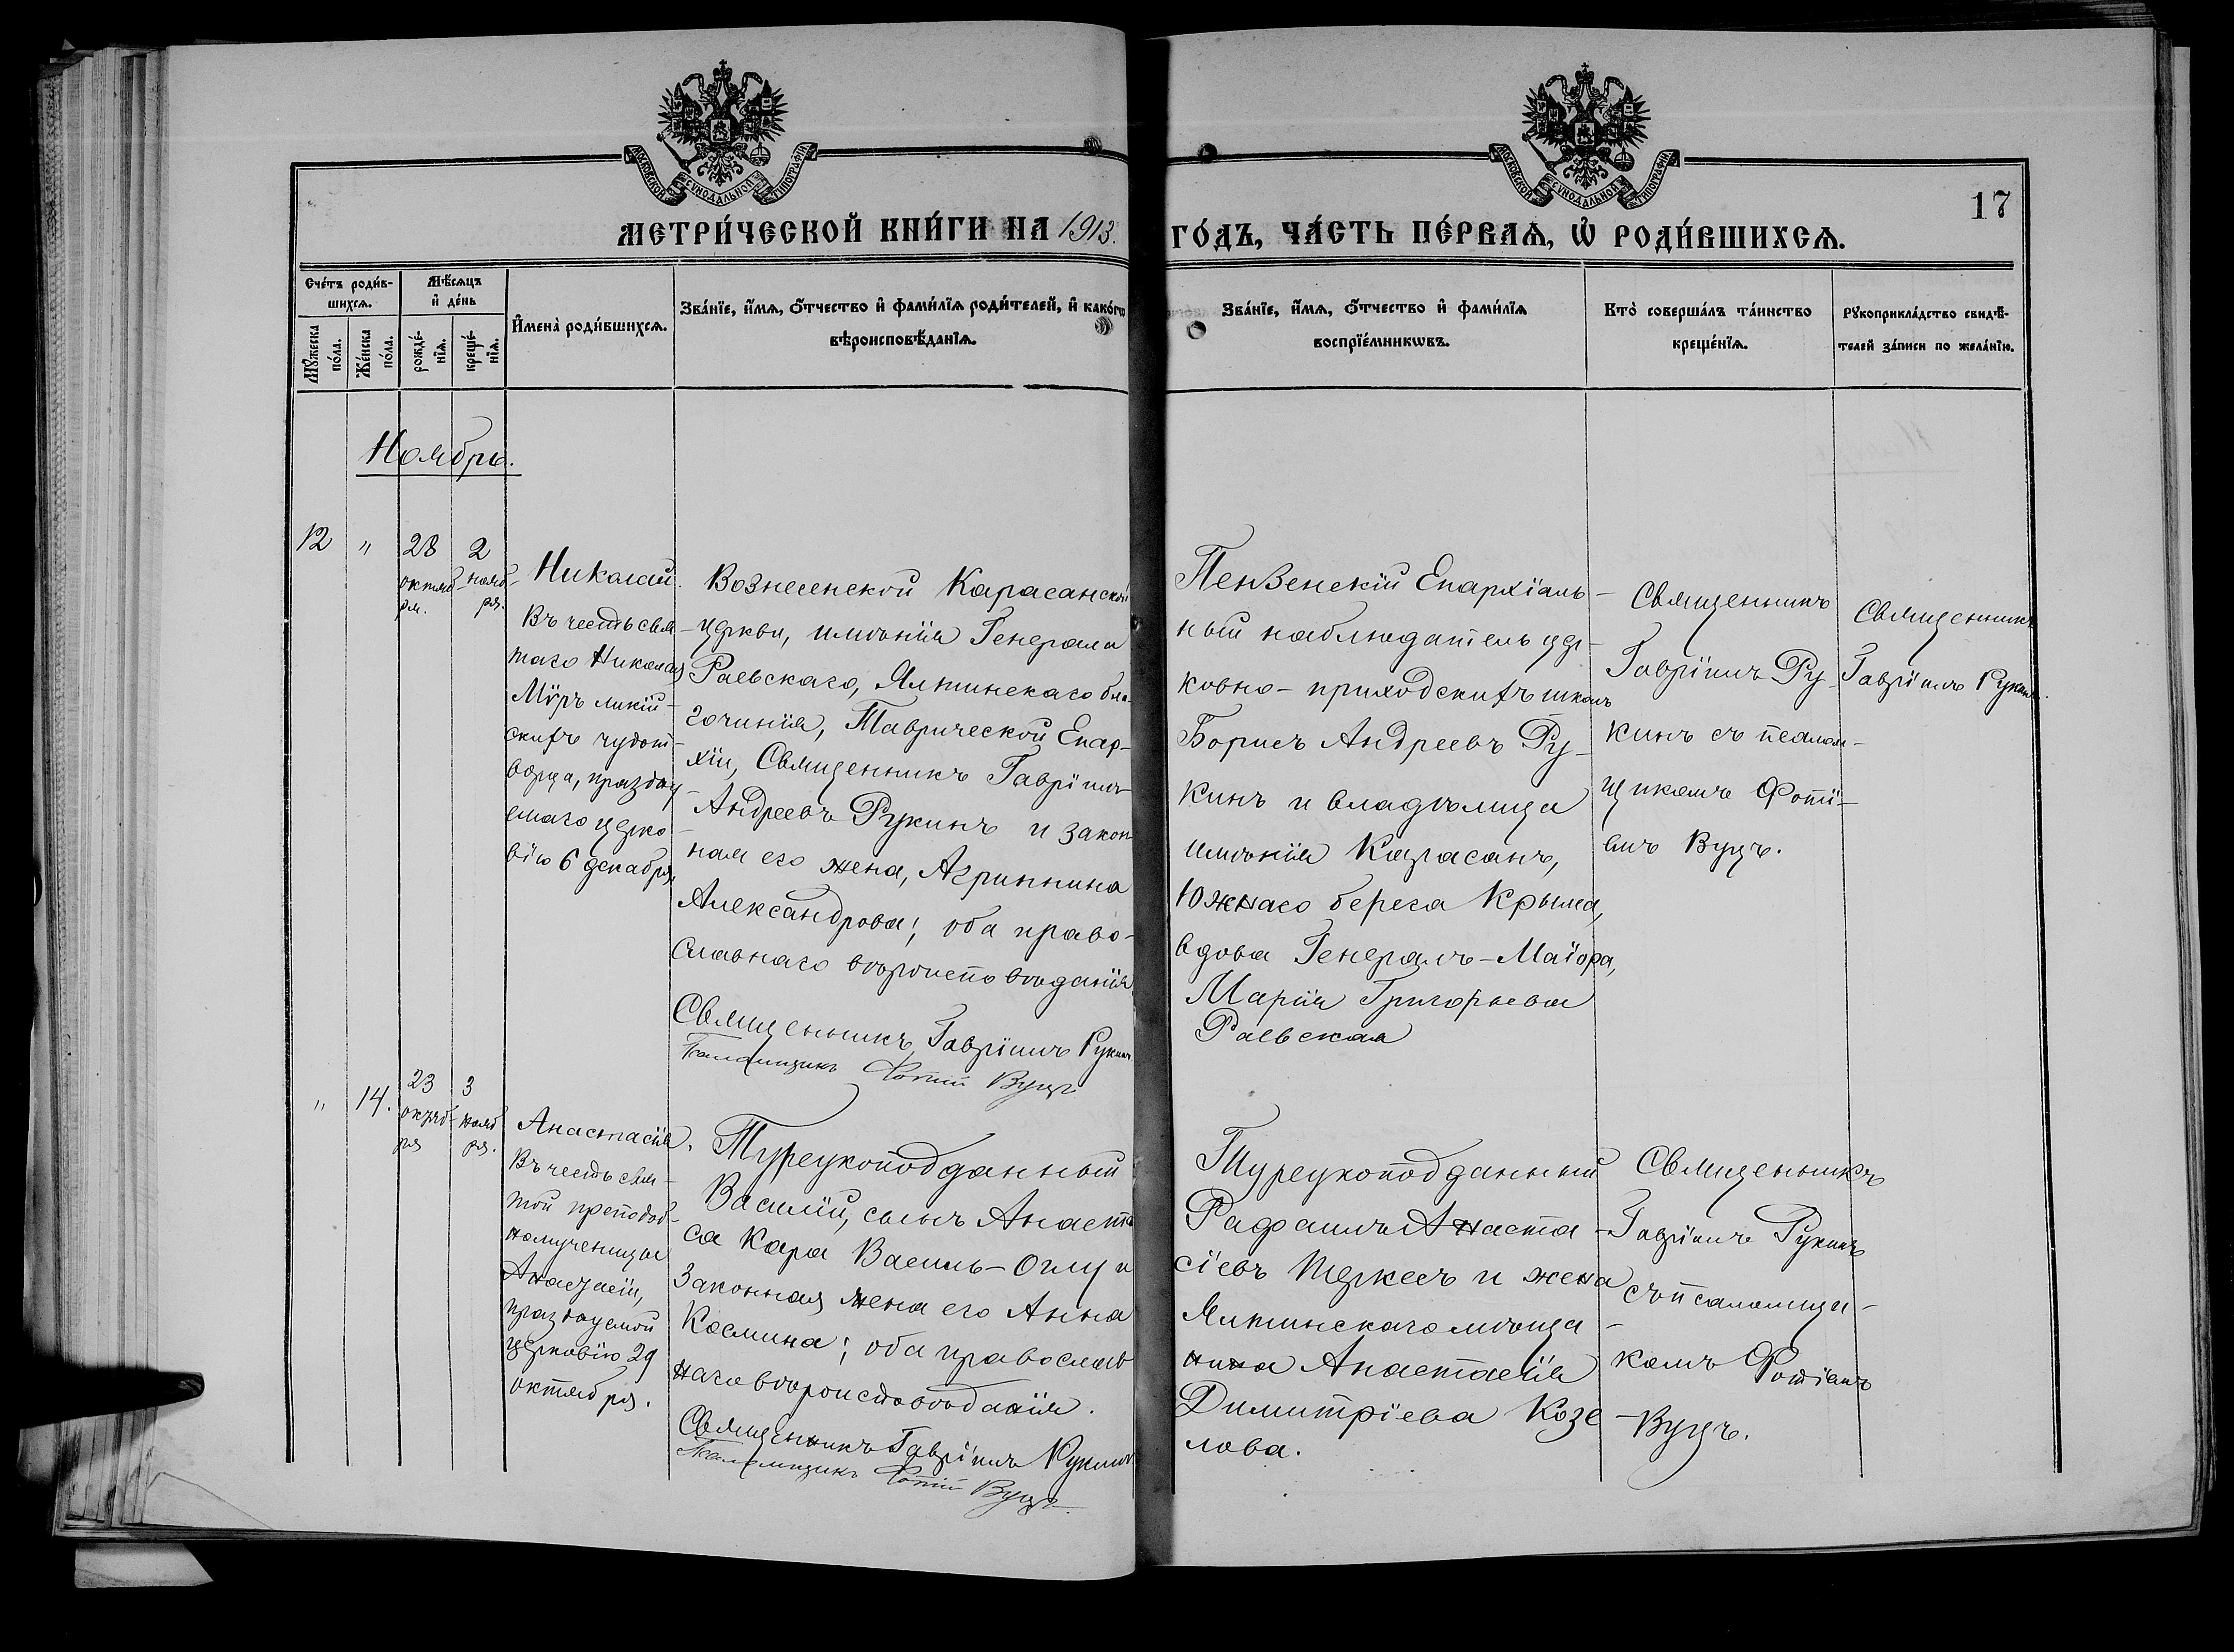 МОСКОВСКОЙ СѴНОДАЛЬНОЙ ТИПОГРАФІИ
МОСКОВСКОЙ СѴНОДАЛЬНОЙ ТИПОГРАФІИ
17
МЕТРИ́ЧЕСКОЙ КНИ́ГИ НА 1913. ГО́ДЪ, ЧА́СТЬ ПЕ́РВАѦ, Ѡ҆ РОДИ́ВШИХСѦ.
Сче́тъ роди́в-
шихсѧ.
Мꙋ́жеска по́ла.
Же́нска по́ла.
Мѣ́сѧцъ
и҆ де́нь
рожде́-нїѧ.
креще́-нїѧ.
И҆мена̀ роди́вшихсѧ.
Зва́нїе, и҆́мѧ, ѻ҆́тчество и҆ фами́лїѧ роди́телей, и҆ како́гѡ
вѣроисповѣ́данїѧ.
Зва́нїе, и҆́мѧ, ѻ҆́тчество и҆ фами́лїѧ
воспрїе́мникѡвъ.
Кто̀ соверша́лъ та́инство
креще́нїѧ.
Рꙋкоприкла́дство свидѣ́-
телей за́писи по жела́нїю.
Ноябрь.
12
"
28
октяб-
ря.
2
нояб-
ря.
Николай.
Въ честь свя-
таго Николая
Мѵръ ликій-
скихъ чудот-
ворца, праздну-
емаго церко-
вію 6 декабря.
Вознесенской Карасанской
церкви, имѣнія Генерала
Раевскаго, Ялтинскаго бла-
гочинія, Таврической Епар-
хіи, Священникъ Гавріилъ
Андреевъ Рукинъ и закон-
ная его жена, Агриппина
Александрова; оба право-
славнаго вѣроисповѣданія
Священникъ Гавріилъ Рукинъ
Псаломщикъ Фотій Вуцъ
Пензенскій Епархіаль-
ный наблюдатель цер-
ковно-приходскихъ школъ
Борисъ Андреевъ Ру-
кинъ и владѣлица
имѣнія Карасанъ,
Южнаго берега Крыма,
вдова Генералъ-Маіора,
Марія Григорьева
Раевская
Священникъ
Гавріилъ Ру-
кинъ съ псалом-
щикомъ Фоті-
емъ Вуцъ.
Священникъ
Гавріилъ Рукинъ.
"
14.
23
октяб-
ря
3
нояб
ря.
Анастасія.
Въ честь свя-
той преподоб-
номученицы
Анастасіи,
празднуемой
церковію 29
октября.
Турецкоподданный
Василій, сынъ Анаста
са Кара Василь-Оглу и
Законная жена его Анна
Космина; оба православ
наго вѣроисповѣданія.
Священникъ Гавріилъ Рукинъ
Псаломщикъ Фотій Вуцъ.
Турецкоподданный
Рафаилъ Анаста-
сіевъ Теркесъ и жена
Ялтинскаго мѣща-
нина Анастасія
Димитріева Козе-
лова.
Священникъ
Гавріилъ Рукинъ
съ псаломщи-
комъ Фотіемъ
Вуцъ.